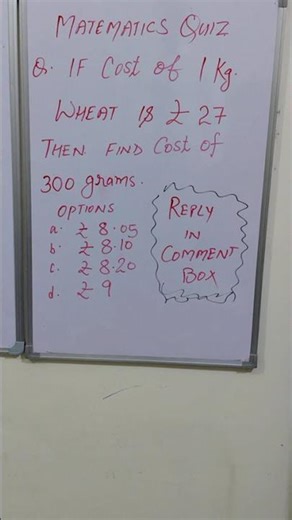 MATEMATICS QUIZ
Q. IF Cost of 1 Kg.
WHEAT IS ₹ 27
THEN FIND Cost of
300 grams.
OPTIONS
a. ₹ 8.05
b. ₹ 8.10
c. ₹ 8.20
d. ₹ 9
REPLY
IN
COMMENT
BOX